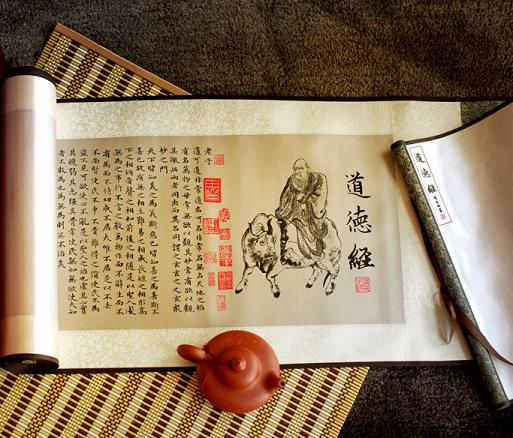 道德經
道德經
老子
道可道非常道名可名非常名無名天地之始
有名萬物之母常無欲以觀其妙常有欲以觀
其徼此兩者同出而異名同謂之玄玄之又玄衆
妙之門
天下皆知美之為美斯惡已皆知善之為善斯不
善已故有無之相生難易之相成長短之相形高
下之相傾音聲之相和前後之相隨是以聖人處
無為之事行不言之教萬物作而不辭生而不
有為而不恃功成不居夫唯不居是以不去
不尚賢使民不爭不貴難得之貨使民不為
盜不見可欲使心不亂是以聖人之治也虛其心實
其腹弱其志強其骨常使民無知無欲使夫知
者不敢為也為無為則無不治矣